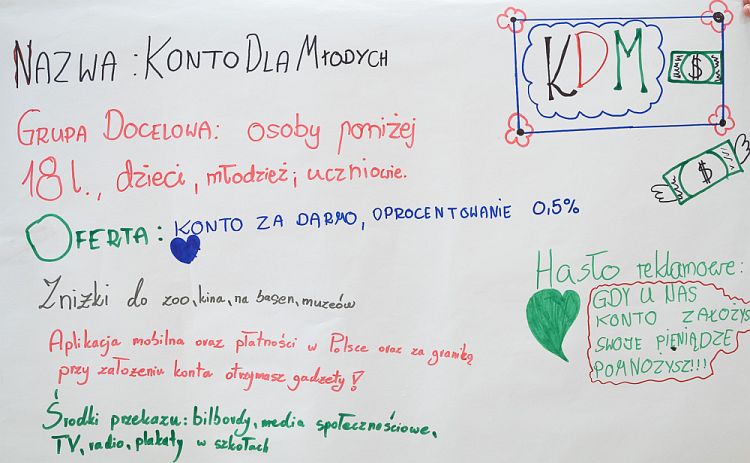 NAZWA: KONTO DLA MŁODYCH
KDM
$
GRUPA DOCELOWA: osoby poniżej
18 l., dzieci, młodzież i uczniowie.
$
OFERTA: KONTO ZA DARMO, OPROCENTOWANIE 0,5%
Zniżki do zoo, kina, na basen, muzeów
Aplikacja mobilna oraz płatności w Polsce oraz za granicą
przy założeniu konta otrzymasz gadżety!
Środki przekazu: bilbordy, media społecznościowe,
TV, radio, plakaty w szkołach
Hasło reklamowe:
GDY U NAS
KONTO ZAŁOŻYSZ
SWOJE PIENIĄDZE
POMNOŻYSZ!!!